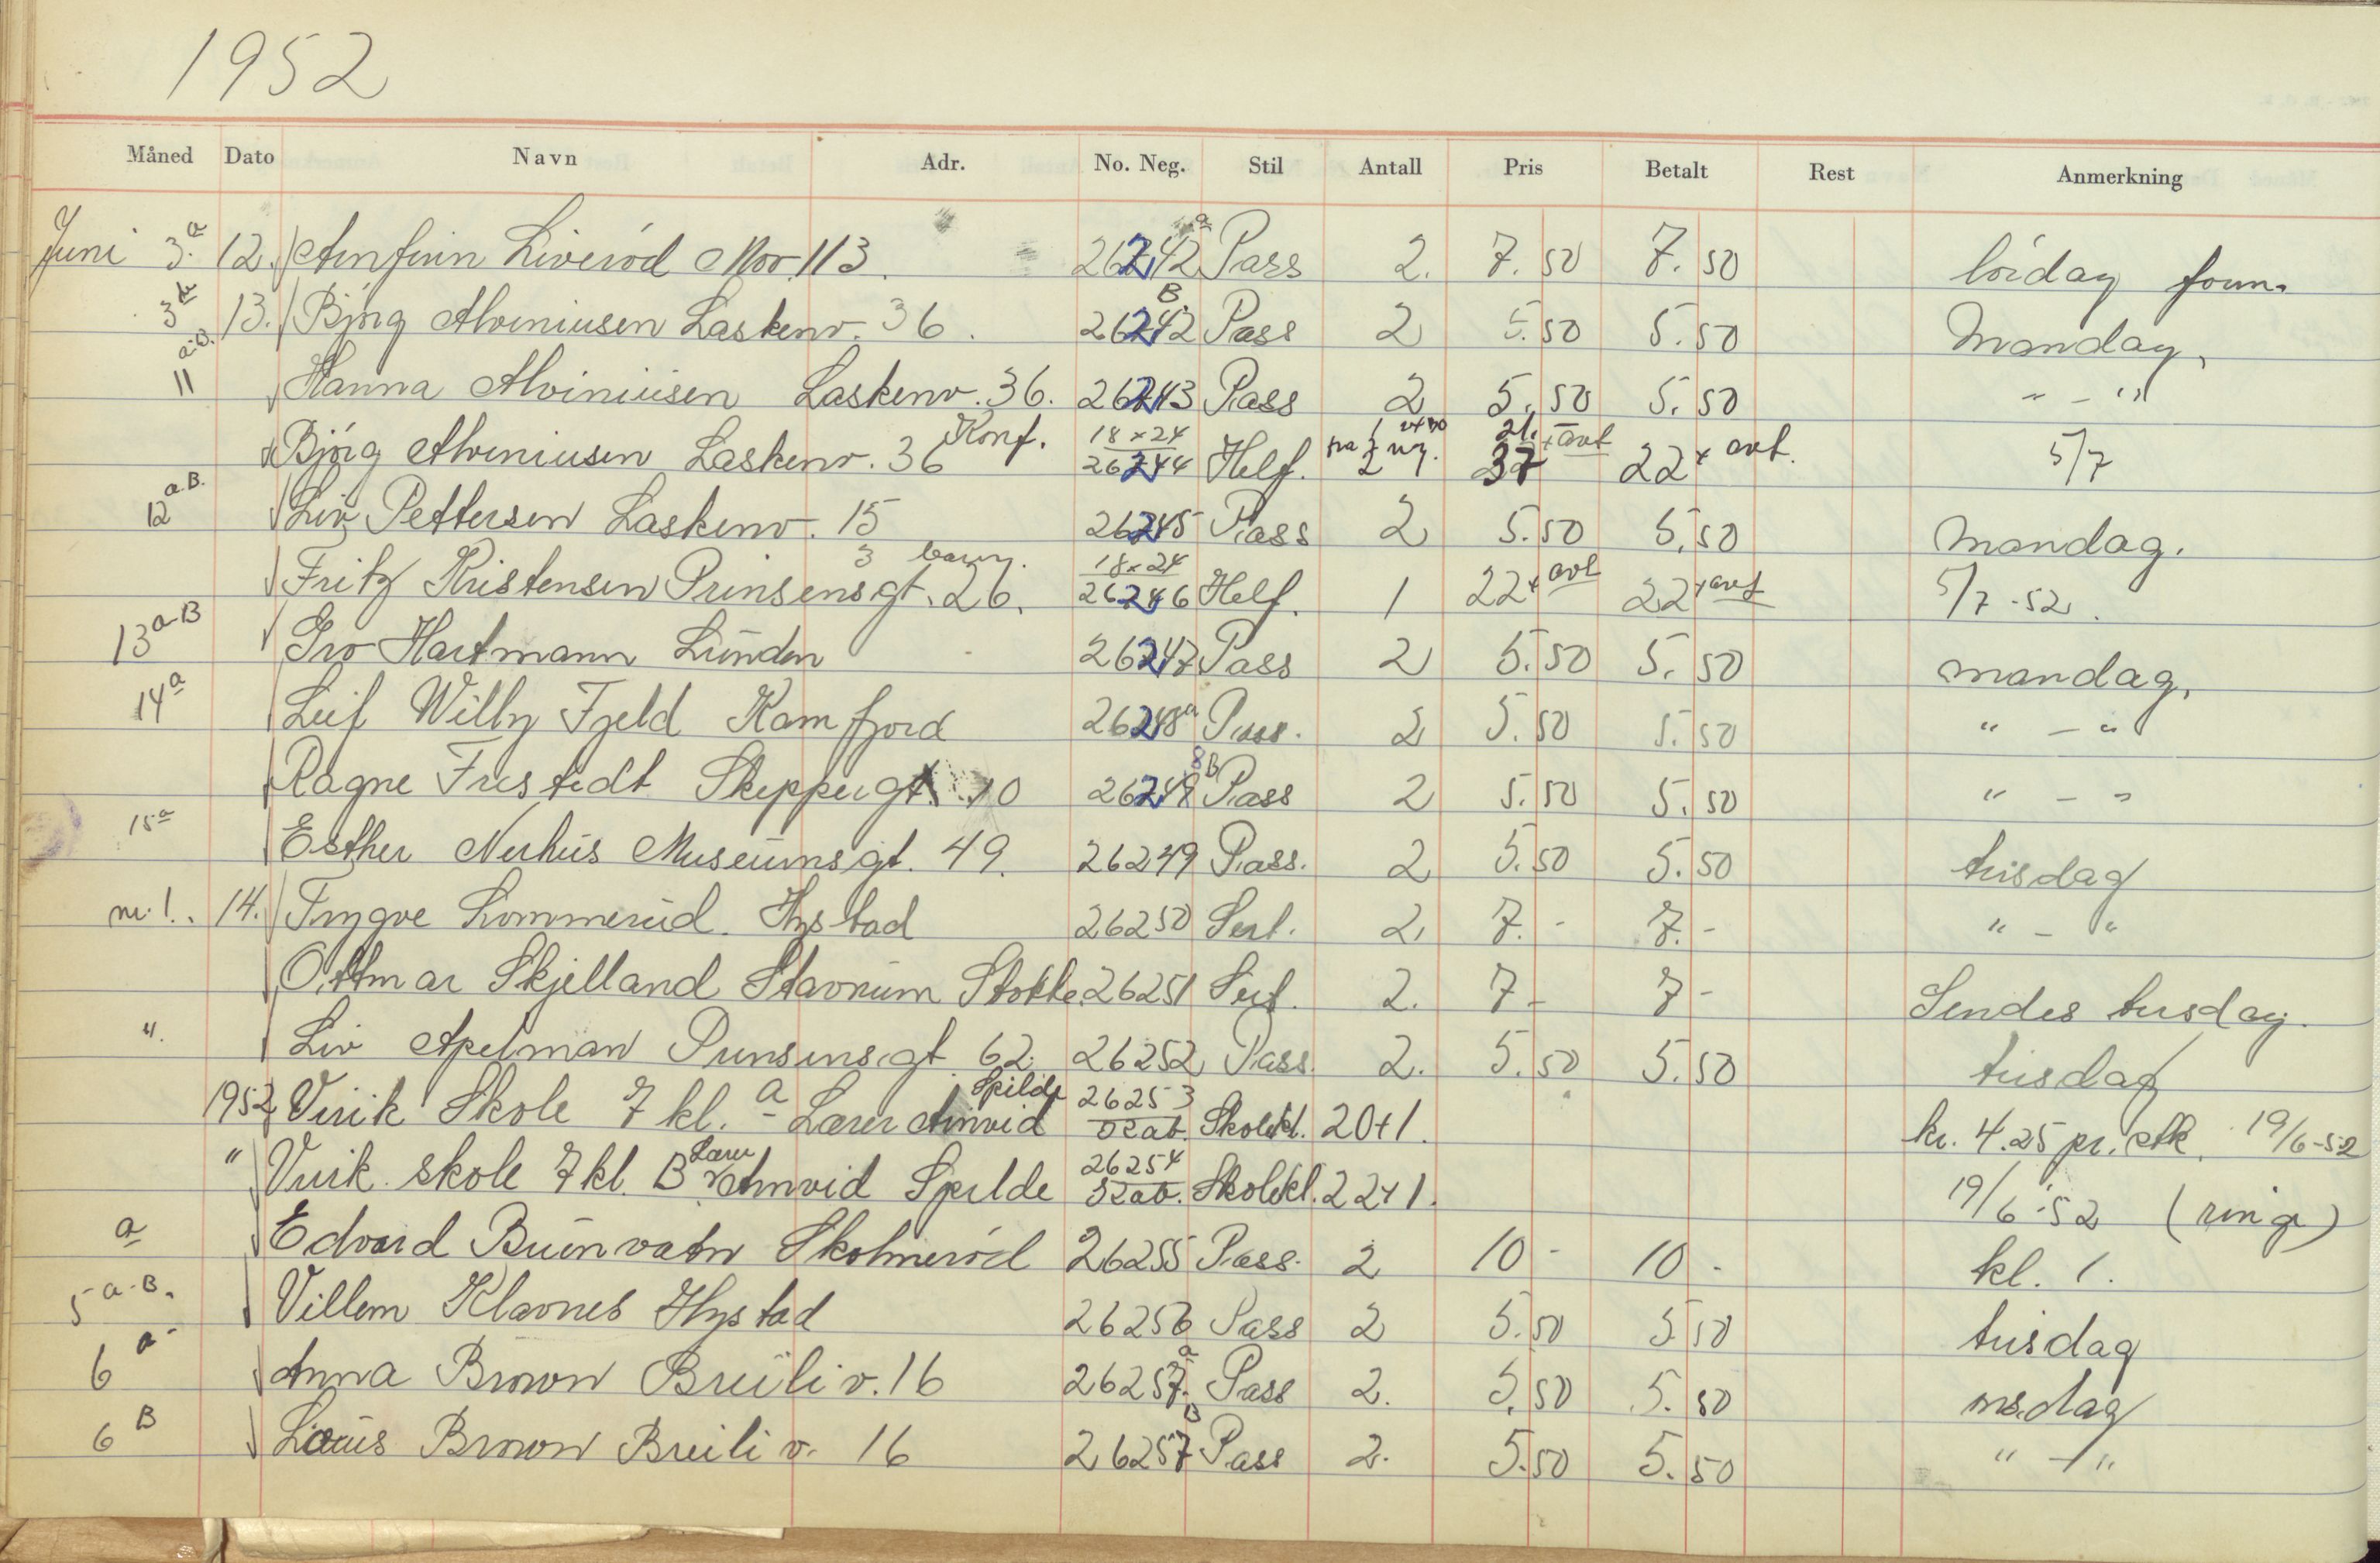 1952
Måned Dato Navn Adr. No. Neg. Stil Antall Pris Betalt Rest Anmerkning
Juni 3.a 12. Arnfinn Liveröd Mor. 113. 26242a Pass 2. 7.50 7.50 lördag form.
3b 13. Björg Alveniusen Laskenv. 36. 26242B Pass 2 5.50 5.50 Mandag,
11 a.B. Hanna Alviniusen Laskenv. 36. 26243 Pass 2 5.50 5.50 " - "
Björg Alveniusen Laskenv. 36 Konf. 18x24 26244 Helf. 22 + avt. 5/7
12 a.B. Liv Pettersen Laskenv. 15 26245 Pass 2 5.50 5.50 Mandag.
Fritz Kristensen Prinsensgt. 26. 3 barn. 18x24 26246 Helf. 1 22 + avt 22 + avt 5/7-52.
13 a-B Gro Hartmann Lunden 26247 Pass 2 5.50 5.50 mandag,
14a Leif Willy Fjeld Kamfjord 26248a Pass. 2 5.50 5.50 " - "
Ragne Frestedt Skippergt. 10 26248B Pass 2 5.50 5.50 " - "
15a Esther Nerhus Museumsgt. 49. 26249 Pass. 2 5.50 5.50 tirsdag
nr. 1. 14. Trygve Lommerud. Hystad 26250 Sert. 2, 7.- 7.- " - "
Ottmar Skjelland Stavnum Stokke 26251 Sert. 2. 7- 7- Sendes tirsdag.
". Liv Apelman Prinsensgt 62. 26252 Pass. 2. 5.50 5.50 tirsdag
1952 Virik Skole 7 kl. a - Lærer Arnvid Spilde 26253 Skolekl. 20+1. kr. 4.25 pr. stk. 19/6-52
" Virik skole 7 kl. B Lærer Arnvid Spilde 26254 Skolekl. 22+1. 19/6-52 (ringe)
a Edvard Buenvatn Skolmeröd 26255 Pass. 2 10- 10- kl. 1.
5 a-B. Villem Klavnes Hystad 26256 Pass 2 5.50 5.50 tirsdag
6 a- Anna Brown Breiliv. 16 26257.a Pass 2. 5.50 5.50 onsdag
6 B Louis Brown Breiliv. 16 26257B Pass 2. 5.50 5.50 " - "